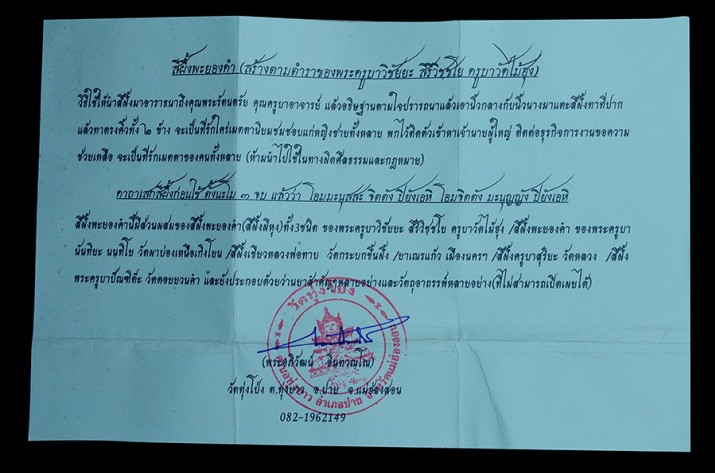 สีผึ้งพะยองคำ (สร้างตามตำราของพระครูบาวิชัยยะ สิริวิชฺชโย ครูบาวัดไม้ฮุง)
วิธีใช้ให้นำสีผึ้งมาอาราธนาถึงคุณพระรัตนตรัย คุณครูบาอาจารย์ แล้วอธิษฐานตามใจปรารถนาแล้วเอานิ้วกลางกับนิ้วนางมาแตะสีผึ้งทาที่ปาก
แล้วทาตรงคิ้วทั้ง ๒ ข้าง จะเป็นที่รักใคร่เมตตานิยมชมชอบแก่หญิงชายทั้งหลาย พกไว้ติดตัวเข้าหาเจ้านายผู้ใหญ่ ติดต่อธุรกิจการงานขอความ
ช่วยเหลือ จะเป็นที่รักเมตตาของคนทั้งหลาย (ห้ามนำไปใช้ในทางผิดศีลธรรมและกฎหมาย)
คาถาเสกสีผึ้งก่อนใช้ ตั้งนะโม ๓ จบ แล้วว่า โอมมะนุสสะ จิตตัง ปิยังเอหิ โอมจิตตัง มะนุญญัง ปิยังเอหิ
สีผึ้งพะยองคำนี้มีส่วนผสมของสีผึ้งพะยองคำ(สีผึ้งมีหุง)ทั้ง3ชนิด ของพระครูบาวิชัยยะ สิริวิชฺชโย ครูบาวัดไม้ฮุง /สีผึ้งพะยองคำ ของพระครูบา
นันทิยะ นนฺทิโย วัดผาบ่องเหนือเถิงโยน /สีผึ้งเขียวหลวงพ่อทาบ วัดกระบกขึ้นผึ้ง /ยาเณรแก้ว เมืองนครฯ /สีผึ้งครูบาสุริยะ วัดหลวง /สีผึ้ง
พระครูบาปัณฑิต๊ะ วัดดอยยวนคำ และยังประกอบด้วยว่านยาสำคัญๆหลายอย่างและวัตถุอาถรรพ์หลายอย่าง(ที่ไม่สามารถเปิดเผยได้)
วัดทุ่งโป่ง
(พระอภิวัฒน์ อินทวณฺโณ)
วัดทุ่งโป่ง ต.ทุ่งยาว อ.ปาย จ.แม่ฮ่องสอน
ตำบลทุ่งยาว อำเภอปาย จังหวัดแม่ฮ่องสอน
082-1962149